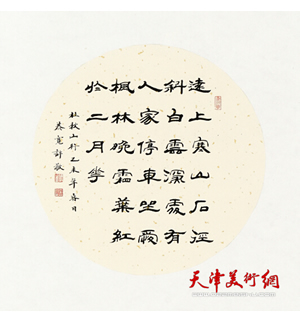 遠上寒山石徑
斜白雲深處有
人家停車坐愛
楓林晚霜葉紅
於二月花
杜牧山行乙未年春日
天津美術網